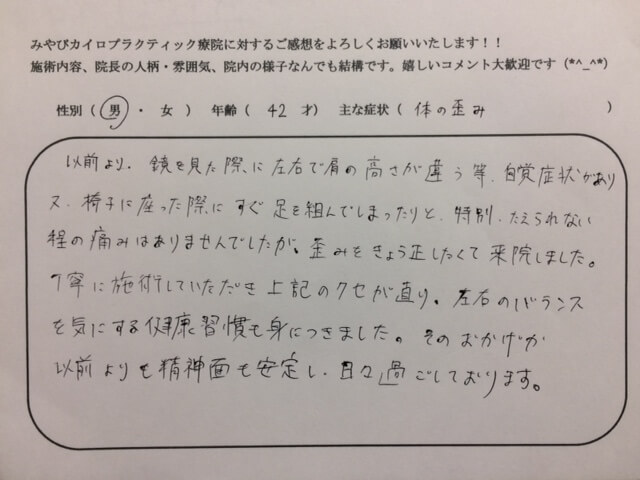 みやびカイロプラクティック療院に対するご感想をよろしくお願いいたします！！
施術内容、院長の人柄・雰囲気、院内の様子なんでも結構です。嬉しいコメント大歓迎です（*^_^*）
性別（ 男 ・ 女 ） 年齢（ 42 才） 主な症状（ 体の歪み ）
以前より、鏡を見た際に左右で肩の高さが違う等、自覚症状があり
又、椅子に座った際にすぐ足を組んでしまったりと、特別、たえられない
程の痛みはありませんでしたが、歪みをきょう正したくて来院しました。
丁寧に施術していただき上記のクセが直り、左右のバランス
を気にする健康習慣も身につきました。そのおかげか
以前よりも精神面も安定し、日々過ごしております。